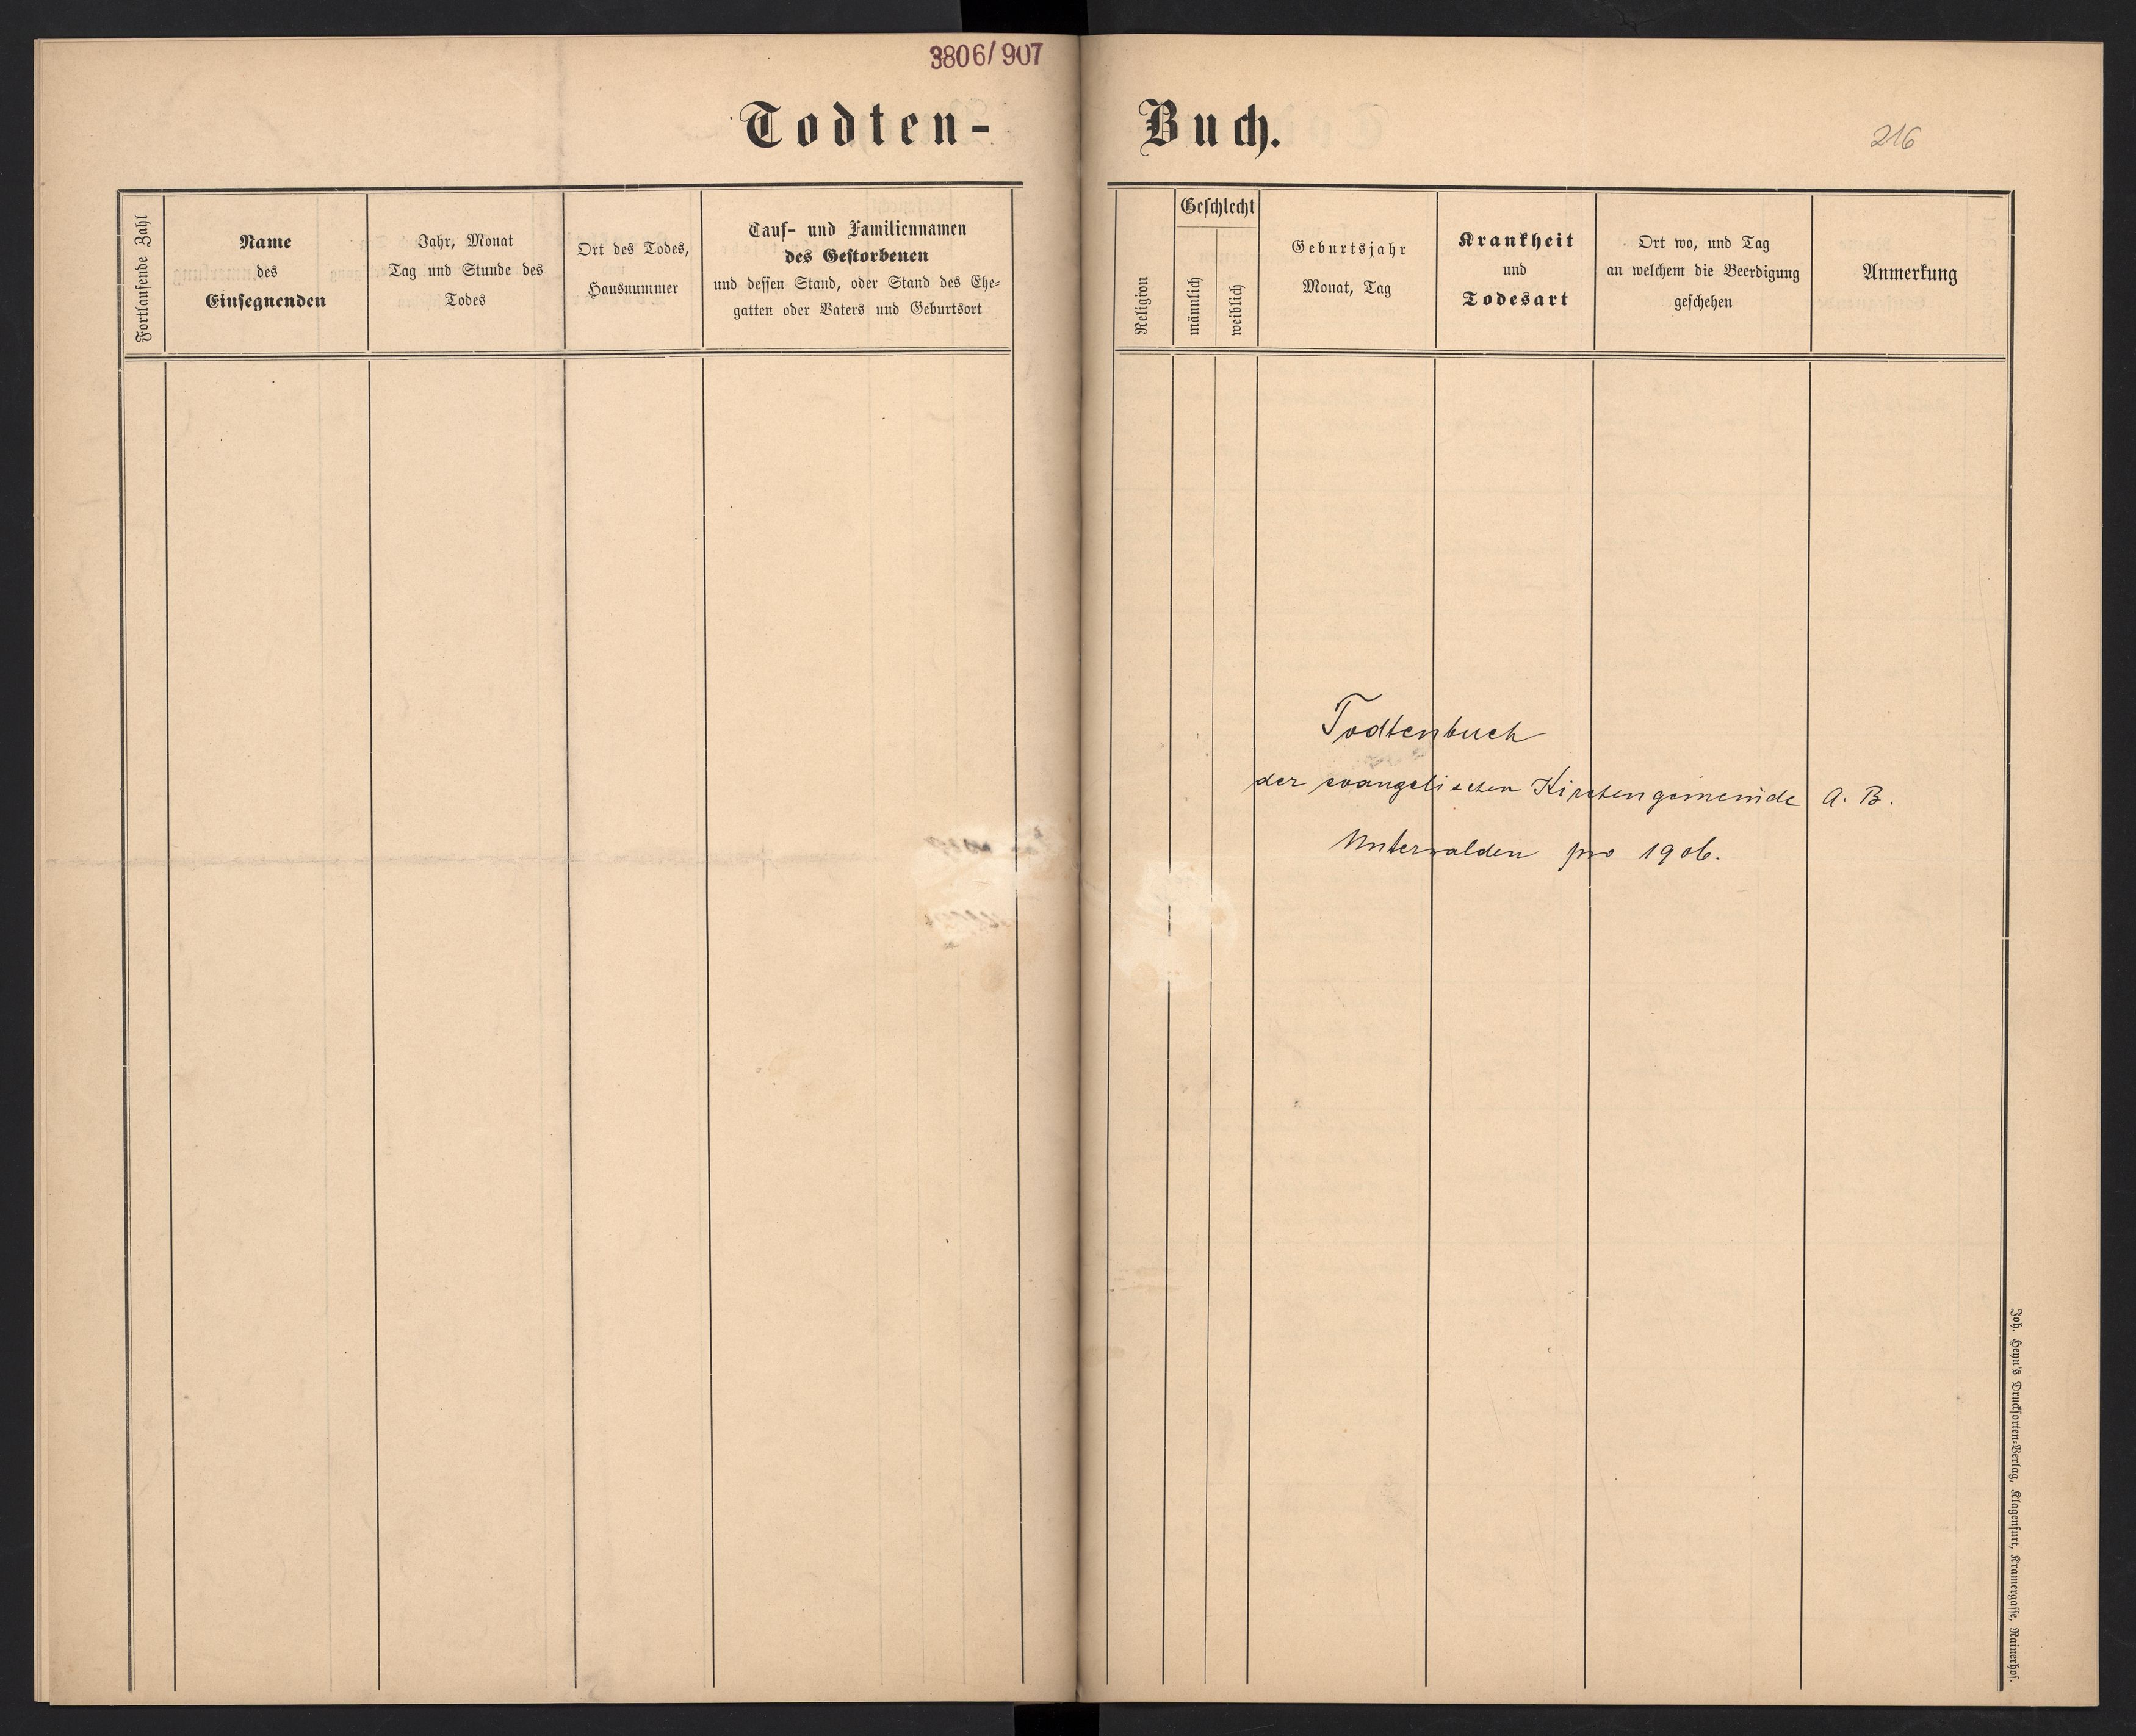 3806/907
Todten-
Buch.
216
Fortlaufende Zahl
Name
des
Einsegnenden
Jahr, Monat
Tag und Stunde des
Todes
Ort des Todes,
Hausnummer
Tauf- und Familiennamen
des Gestorbenen
und dessen Stand, oder Stand des Ehe-
gatten oder Vaters und Geburtsort
Religion
Geschlecht
männlich
weiblich
Geburtsjahr
Monat, Tag
Krankheit
und
Todesart
Ort wo, und Tag
an welchem die Beerdigung
geschehen
Anmerkung
Todtenbuch
der evangelischen Kirchengemeinde A. B.
Unterwalden pro 1906.
Joh. Heyn's Drucksorten-Verlag, Klagenfurt, Kramergasse, Rainerhof.